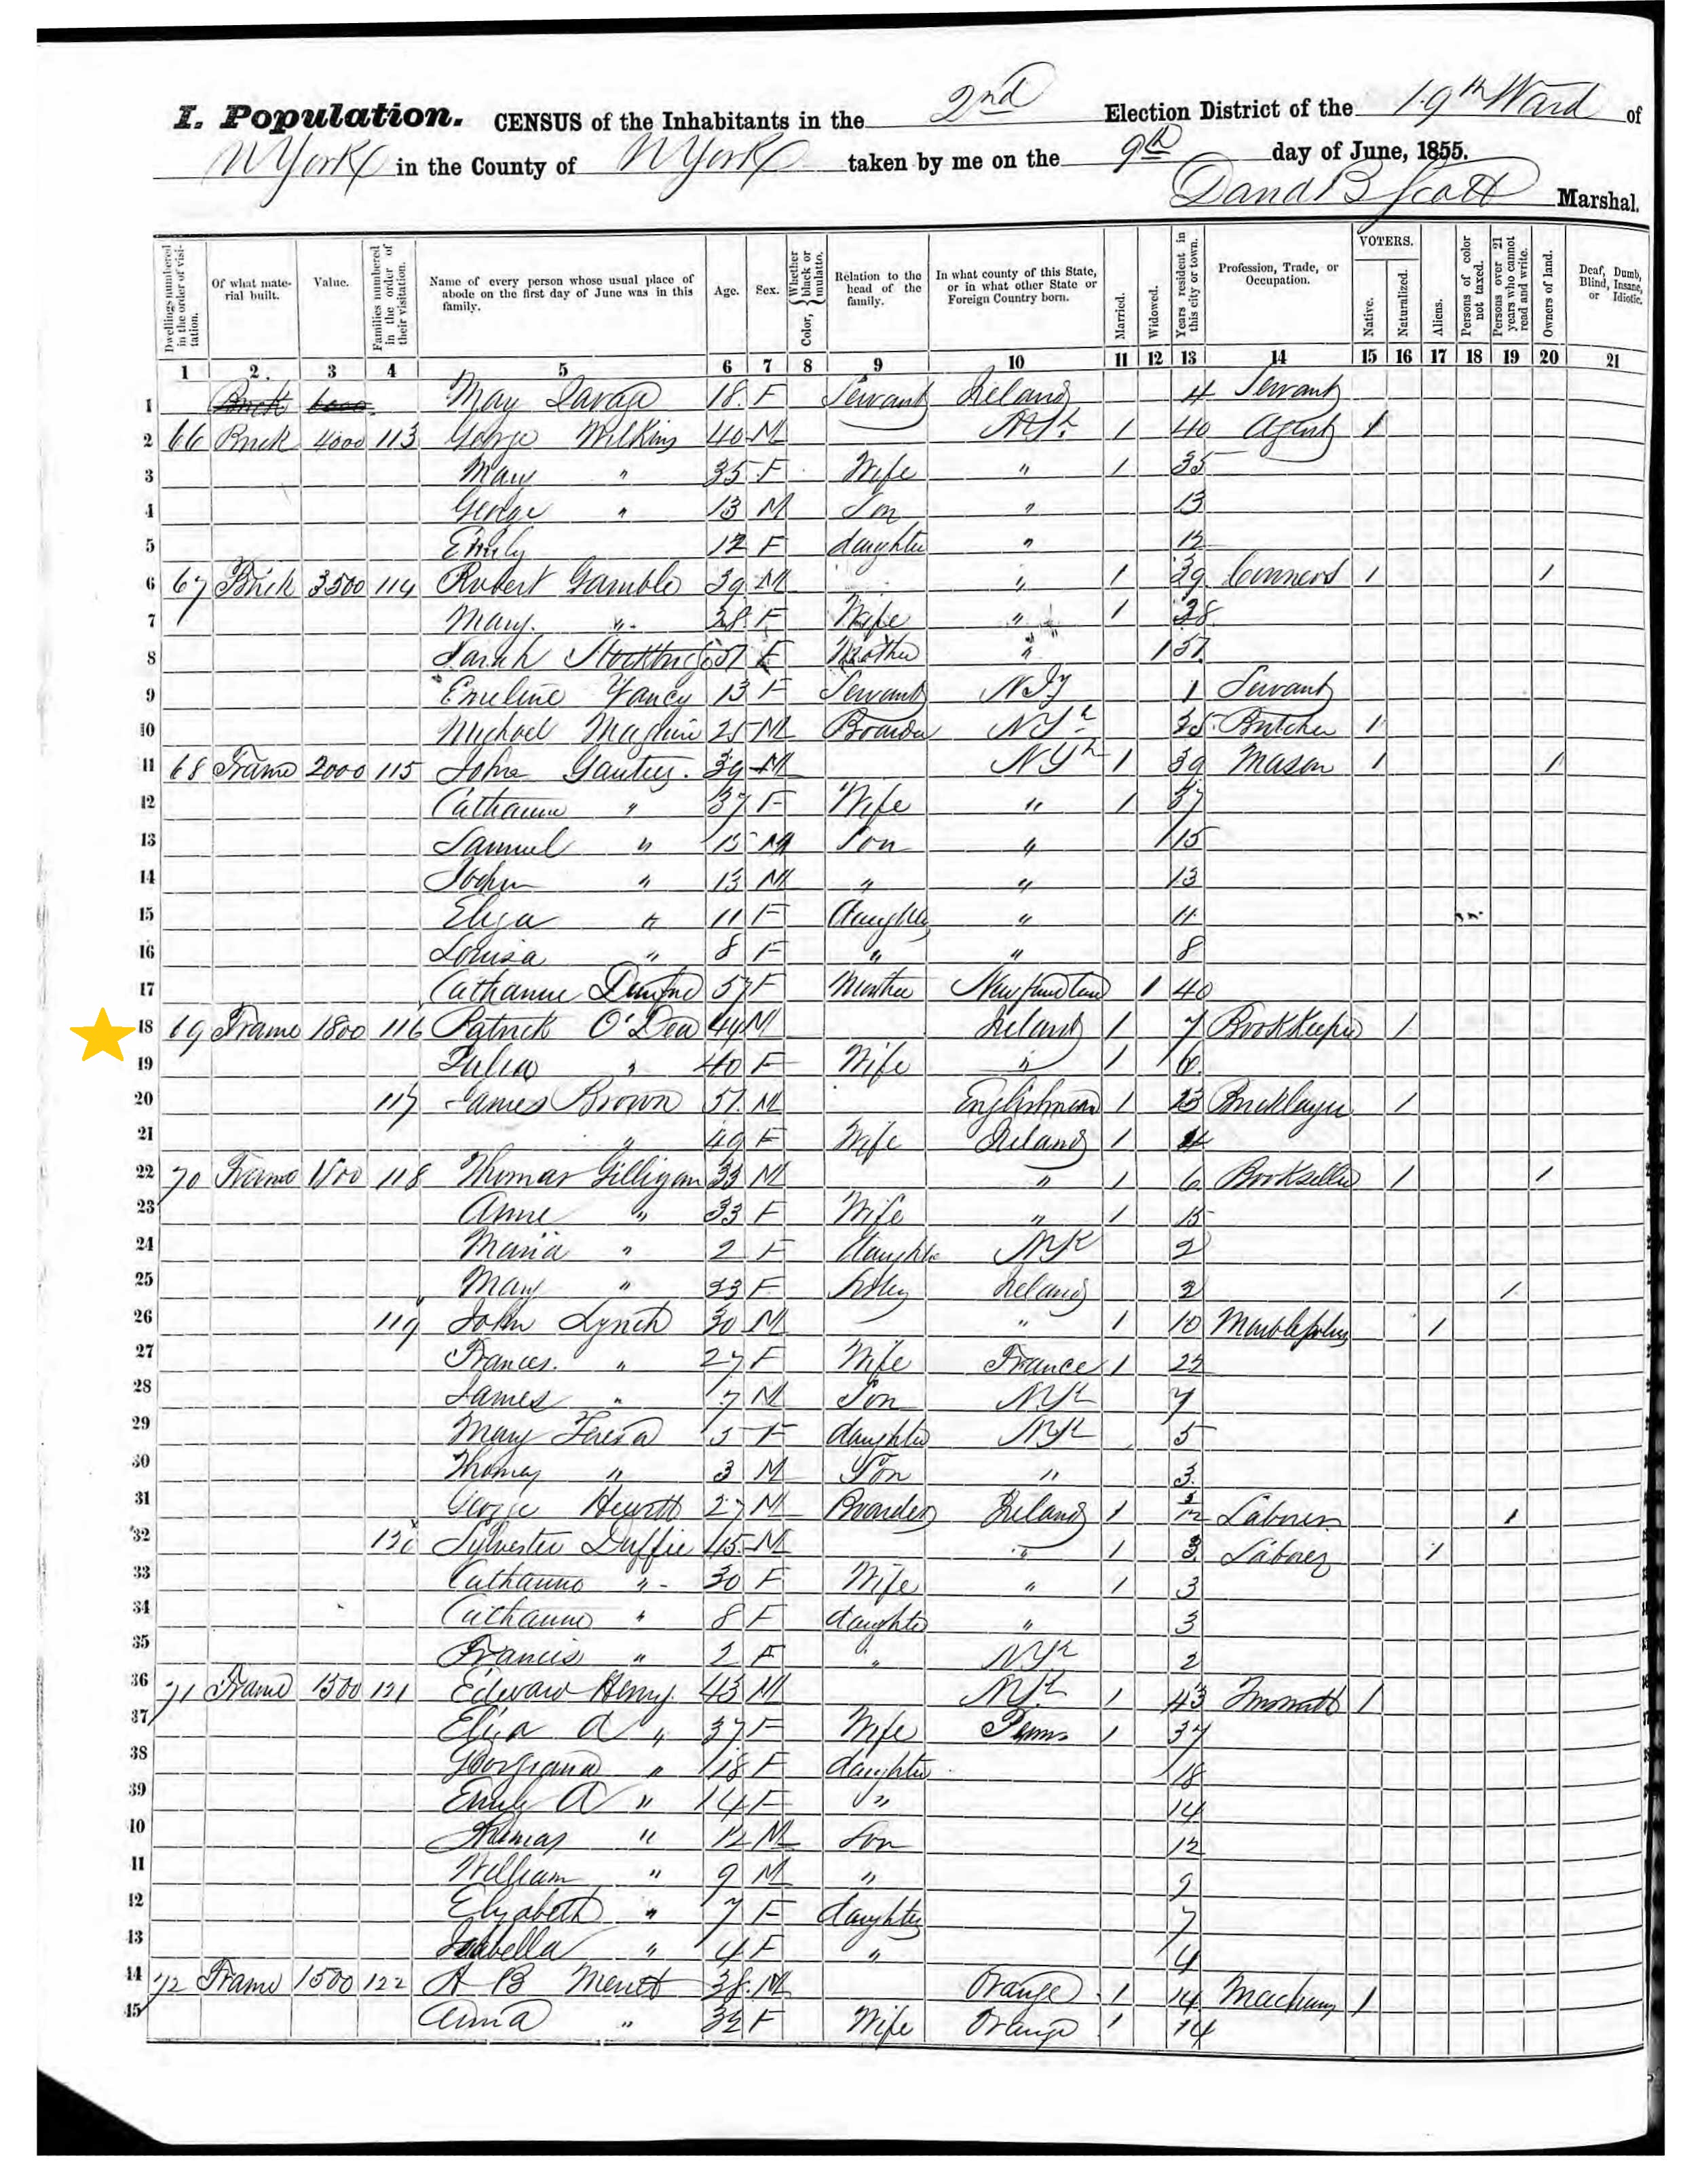 I. Population. CENSUS of the Inhabitants in the 2nd Election District of the 19th Ward of
N York in the County of N York taken by me on the 9th day of June, 1855.
David B Scott Marshal.
Dwellings numbered in the order of visitation. Of what material built. Value. Families numbered in the order of their visitation. Name of every person whose usual place of abode on the first day of June was in this family. Age. Sex. Color, Whether black or mulatto. Relation to the head of the family. In what county of this State, or in what other State or Foreign Country born. Married. Widowed. Years resident in this city or town. Profession, Trade, or Occupation. VOTERS. Native. Naturalized. Aliens. Persons of color not taxed. Persons over 21 years who cannot read and write. Owners of land. Deaf, Dumb, Blind, Insane, or Idiotic.
1 2 3 4 5 6 7 8 9 10 11 12 13 14 15 16 17 18 19 20 21
1 Brick 6000 Mary 18 F Servant Ireland 4 Servant
2 66 Brick 4000 113 George Wilkins 40 M NYk 1 40 Agent 1
3 Mary " 35 F Wife " 1 35
4 George " 13 M Son " 13
5 Emily 12 F daughter " 12
6 67 Brick 3500 114 Robert Gamble 39 M " 1 39 1 1
7 Mary " 38 F Wife " 1 38
8 Sarah 57 F Mother " 1 57
9 Emeline Yancy 13 F Servant N Jy 1 Servant
10 Michael 25 M Boarder NYk 25 Butcher 1
11 68 Frame 2000 115 John 39 M NYk 1 39 Mason 1 1
12 Catharine " 37 F Wife " 1 37
13 Samuel " 15 M Son " 1 15
14 John " 13 M " " 13
15 Eliza " 11 F daughter " 11
16 Louisa " 8 F " " 8
17 Catharine 57 F Mother Newfoundland 1 40
18 69 Frame 1800 116 Patrick O'Dea 44 M Ireland 1 7 Bookkeeper 1
19 Julia " 40 F Wife " 1 6
20 117 James Brown 51 M 1 23 Bricklayer 1
21 " 49 F Wife Ireland 1
22 70 Frame 1800 118 Thomas Gilligan 33 M " 1 6 Bookseller 1 1
23 Anne " 33 F Wife " 1 15
24 Maria " 2 F daughter NYk 2
25 Mary " 23 F Ireland 2 1
26 119 John Lynch 30 M " 1 10 1
27 Frances " 27 F Wife France 1 22
28 James " 7 M Son NYk 7
29 Mary Teresa 5 F daughter NYk 5
30 Thomas " 3 M Son " 3
31 George Hewitt 27 M Boarder Ireland 1 Laborer 1
32 120 Sylvester Duffie 45 M " 1 3 Laborer 1
33 Catharine " 30 F Wife " 1 3
34 Catharine " 8 F daughter " 3
35 Francis " 2 F " NYk 2
36 71 Frame 1500 121 Edward Henry 43 M NYk 1 43 1
37 Eliza A " 37 F Wife Penn 1 37
38 Georgiana " 18 F daughter 18
39 Emily A " 14 F " 14
10 Thomas " 12 M Son 12
11 William " 9 M " 9
12 Elizabeth " 7 F daughter 7
13 Isabella " 4 F " 4
14 72 Frame 1500 122 A B Merritt 38 M Orange 1 14 1
15 Anna " 32 F Wife Orange 1 14